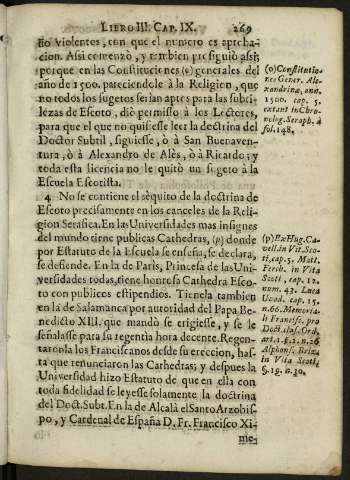 LIBRO III. CAP. IX. 269
no violentes, con que el numero es aproba-
cion. Assi comenzò, y tambien prosiguiò assi;
porque en las Constituciones (o) generales del
año de 1500. pareciendole à la Religion, que
no todos los sugetos serian aptos para las subti-
lezas de Escoto, diò permisso à los Lectores,
para que el que no quisiesse leer la doctrina del
Doctor Subtil, siguiesse, ò à San Buenaven-
tura, ò à Alexandro de Alès, ò à Ricardo; y
toda esta licencia no le quitò un sugeto à la
Escuela Escotista.
4. No se contiene el sèquito de la doctrina de
Escoto precisamente en los canceles de la Reli-
gion Serafica. En las Universidades mas insignes
del mundo tiene publicas Cathedras, (p) donde
por Estatuto de la Escuela se enseña, se declara,
se defiende. En la de Paris, Princesa de las Uni-
versidades todas, tiene honrosa Cathedra Esco-
to con publicos estipendios. Tienela tambien
en la de Salamanca por autoridad del Papa Be-
nedicto XIII. que mandò se erigiesse, y se le
señalasse para su regentia hora decente. Regen-
taronla los Franciscanos desde su ereccion, has-
ta que renunciaron las Cathedras; y despues la
Universidad hizo Estatuto de que en ella con
toda fidelidad se leyesse solamente la doctrina
del Doct. Subt. En la de Alcalà el Santo Arzobis-
po, y Cardenal de España D. Fr. Francisco Xi-
me-
(o) Constitutio-
nes Gener. Ale-
xandrinæ, ann.
1500. cap. 5.
extant in Chro-
nolog. Seraph. à
fol. 148.
(p) Ex Hug. Ca-
vell. in Vit. Sco-
ti, cap. 5. Matt.
Ferch. in Vita
Scoti, cap. 12.
num. 43. Luca
Uvad. cap. 15.
n. 66. Memoria-
li Francisc. pro
Doct. Ord.
art. 1. §. 2. n. 26
Alphons. Briz.
in Vita Scoti,
§. 19. n. 30.